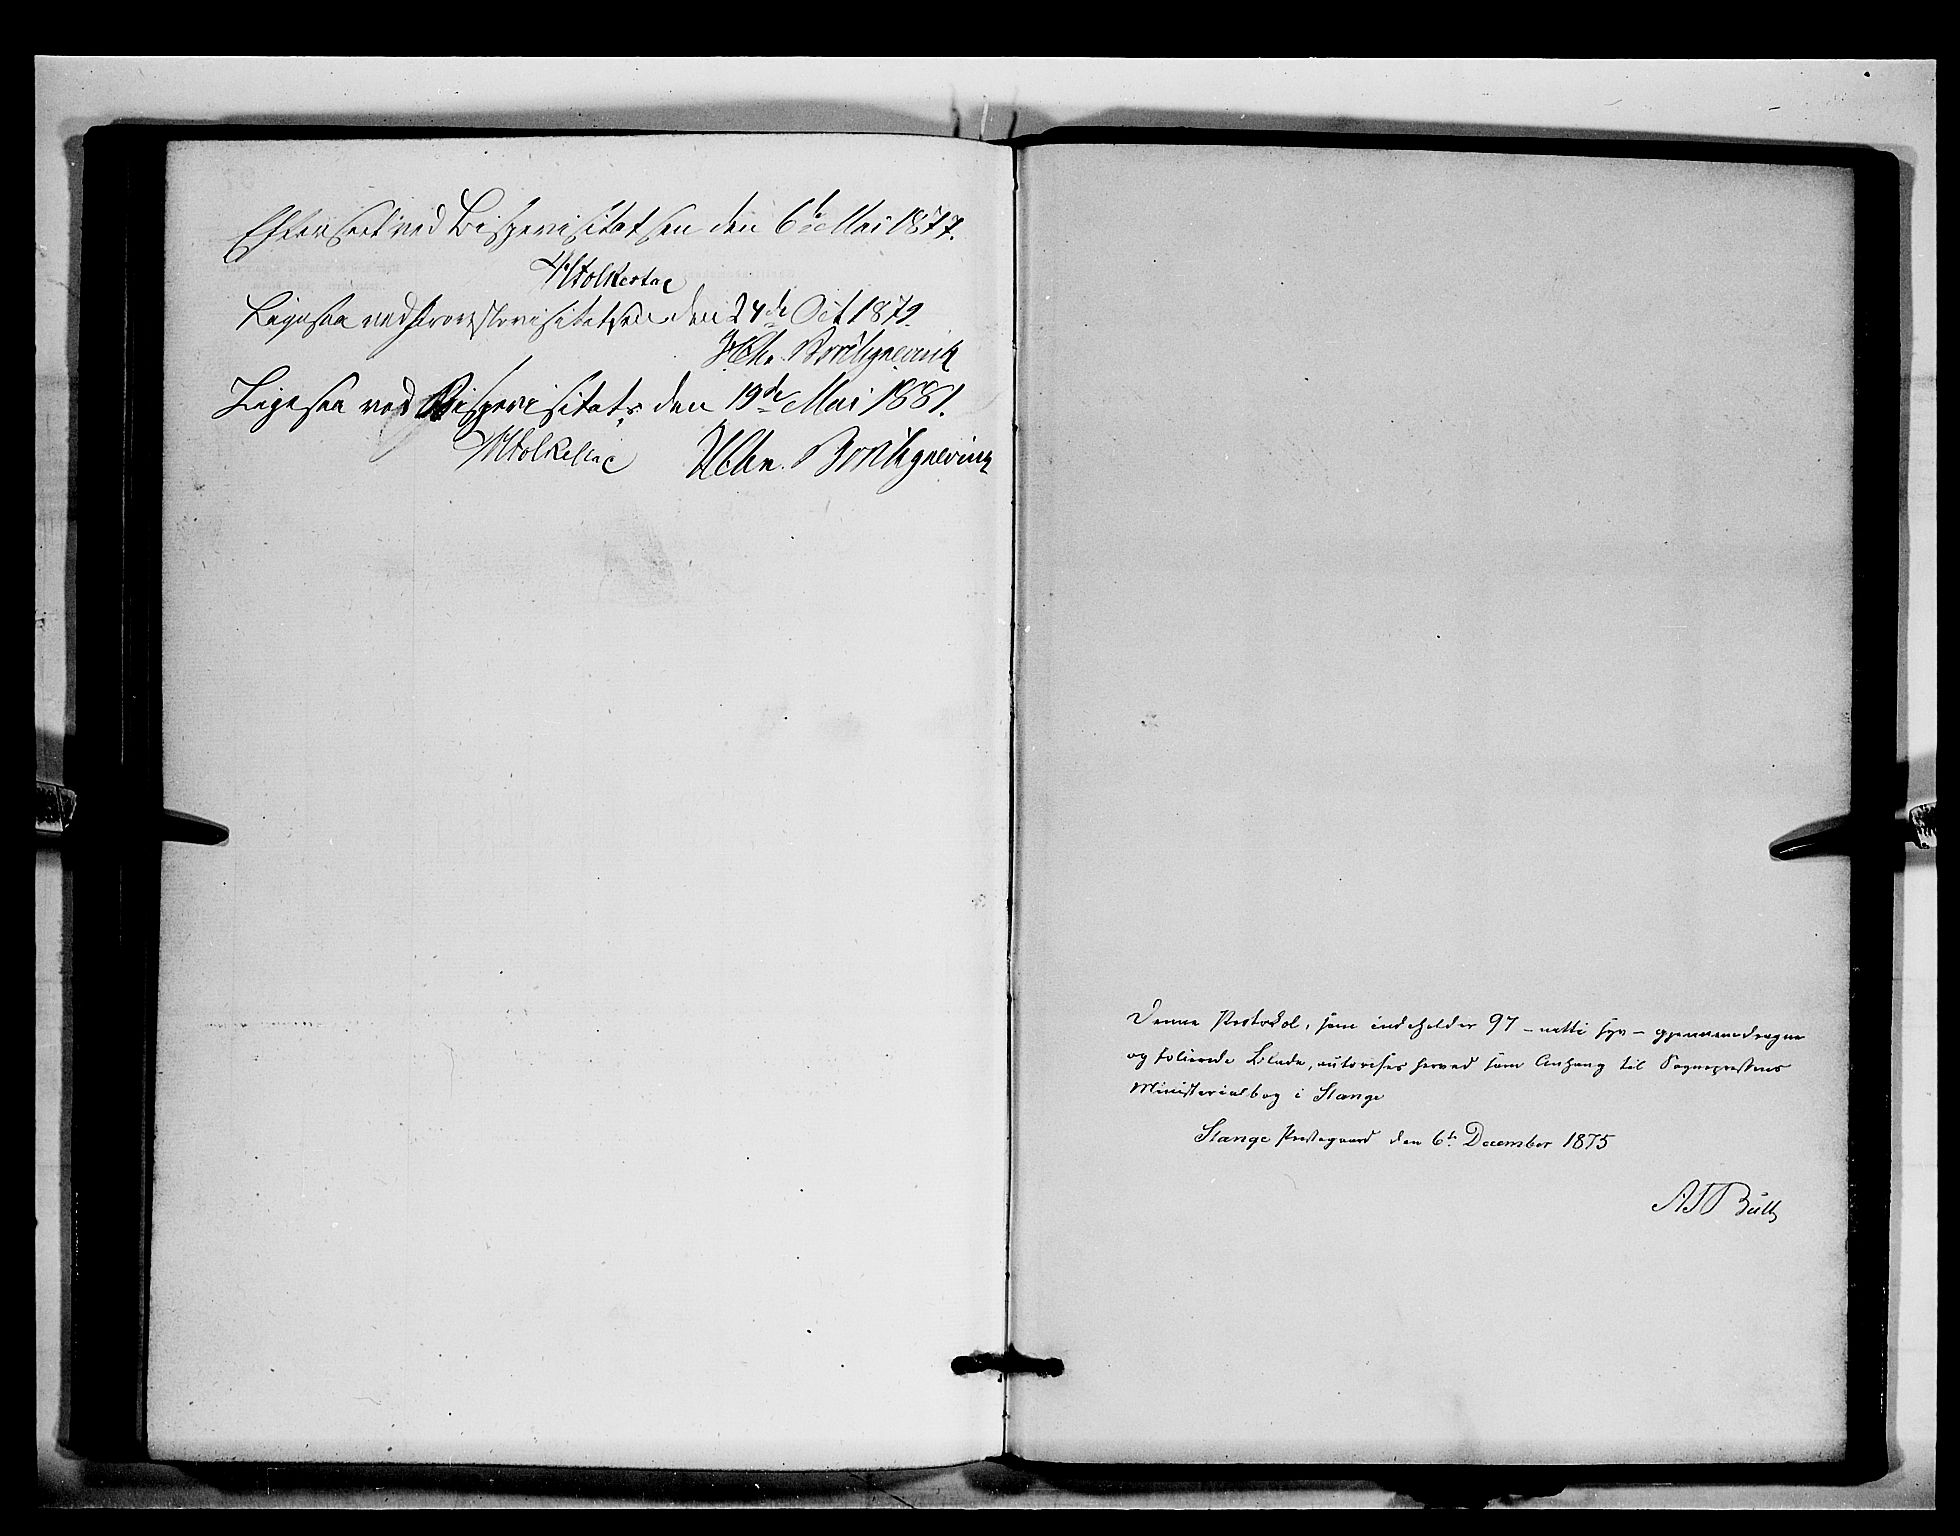 Efterseet ved Bispevisitatsen den 6te Mai 1877.
Ligesaa ved Provstevisitatsen den 24de Oct 1879.
H Chr.
Ligesaa ved Bispevisitats den 19de Mai 1881.
H Chr.
Denne Protokol, som indeholder 97 – nitti syv – gjennemdragne
og folierede Blade, autoriseres herved som Anhang til Sognepræstens
Ministerialbog i Stange
Stange Præstegaard den 6te December 1875
A J Bull